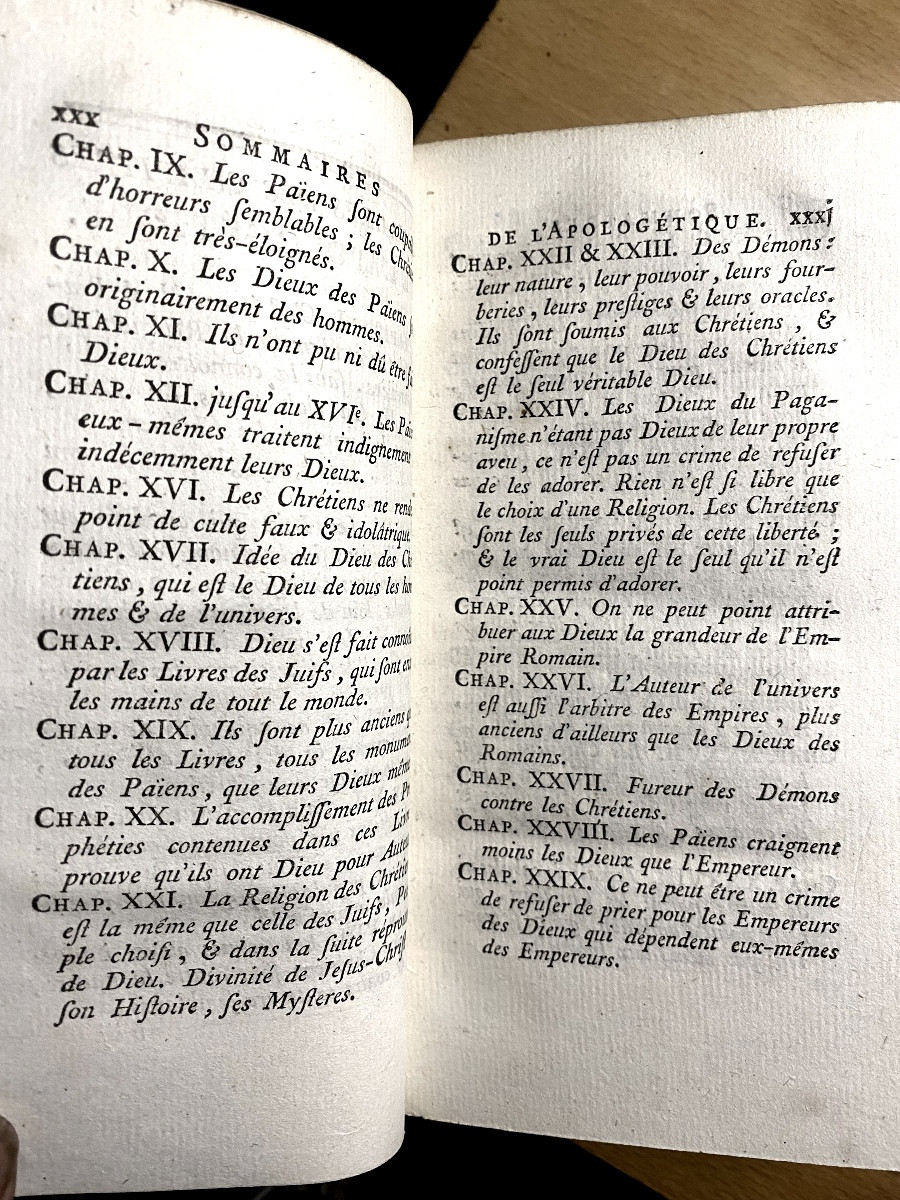 xxx SOMMAIRES
CHAP. IX. Les Païens ſont
d'horreurs ſemblables ; les
en ſont très-éloignés.
CHAP. X. Les Dieux des Païens
originairement des hommes.
CHAP. XI. Ils n'ont pu ni dû être
Dieux.
CHAP. XII. juſqu'au XVIe. Les
eux-mêmes traitent indignement
indécemment leurs Dieux.
CHAP. XVI. Les Chrétiens ne
point de culte faux & idolâtrique
CHAP. XVII. Idée du Dieu des
tiens, qui eſt le Dieu de tous les
mes & de l'univers.
CHAP. XVIII. Dieu s'eſt fait
par les Livres des Juifs, qui ſont
les mains de tout le monde.
CHAP. XIX. Ils ſont plus anciens
tous les Livres, tous les
des Païens, que leurs Dieux
CHAP. XX. L'accompliſſement des
phéties contenues dans ces
prouve qu'ils ont Dieu pour
CHAP. XXI. La Religion des
eſt la même que celle des Juifs,
ple choiſi, & dans la ſuite
de Dieu. Divinité de
ſon Hiſtoire, ſes Myſteres.
DE L'APOLOGÉTIQUE. xxxj
CHAP. XXII & XXIII. Des Démons :
leur nature, leur pouvoir, leurs four-
beries, leurs preſtiges & leurs oracles.
Ils ſont ſoumis aux Chrétiens, &
confeſſent que le Dieu des Chrétiens
eſt le ſeul véritable Dieu.
CHAP. XXIV. Les Dieux du Paga-
niſme n'étant pas Dieux de leur propre
aveu, ce n'eſt pas un crime de refuſer
de les adorer. Rien n'eſt ſi libre que
le choix d'une Religion. Les Chrétiens
ſont les ſeuls privés de cette liberté ;
& le vrai Dieu eſt le ſeul qu'il n'eſt
point permis d'adorer.
CHAP. XXV. On ne peut point attri-
buer aux Dieux la grandeur de l'Em-
pire Romain.
CHAP. XXVI. L'Auteur de l'univers
eſt auſſi l'arbitre des Empires, plus
anciens d'ailleurs que les Dieux des
Romains.
CHAP. XXVII. Fureur des Démons
contre les Chrétiens.
CHAP. XXVIII. Les Païens craignent
moins les Dieux que l'Empereur.
CHAP. XXIX. Ce ne peut être un crime
de refuſer de prier pour les Empereurs
des Dieux qui dépendent eux-mêmes
des Empereurs.